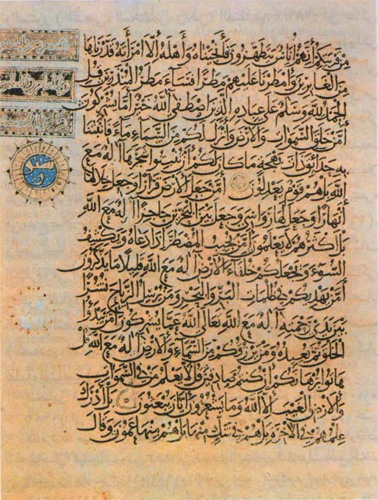 من قريتكم إنهم أناس يتطهرون فأنجيناه وأهله إلا امرأته قدرناها
من الغابرين وأمطرنا عليهم مطرا فساء مطر المنذرين قل
الحمد لله وسلام على عباده الذين اصطفى آلله خير أما يشركون
أمن خلق السموات والأرض وأنزل لكم من السماء ماء فأنبتنا
به حدائق ذات بهجة ما كان لكم أن تنبتوا شجرها أإله مع
الله بل هم قوم يعدلون أمن جعل الأرض قرارا وجعل خلالها
أنهارا وجعل لها رواسي وجعل بين البحرين حاجزا أإله مع الله
بل أكثرهم لا يعلمون أمن يجيب المضطر إذا دعاه ويكشف
السوء ويجعلكم خلفاء الأرض أإله مع الله قليلا ما تذكرون
أمن يهديكم في ظلمات البر والبحر ومن يرسل الرياح نشرا
بين يدي رحمته أإله مع الله تعالى الله عما يشركون أمن يبدؤا
الخلق ثم يعيده ومن يرزقكم من السماء والأرض أإله مع الله قل
هاتوا برهانكم إن كنتم صادقين قل لا يعلم من في السموات
والأرض الغيب إلا الله وما يشعرون أيان يبعثون بل ادارك
علمهم في الآخرة بل هم في شك منها بل هم منها عمون وقال